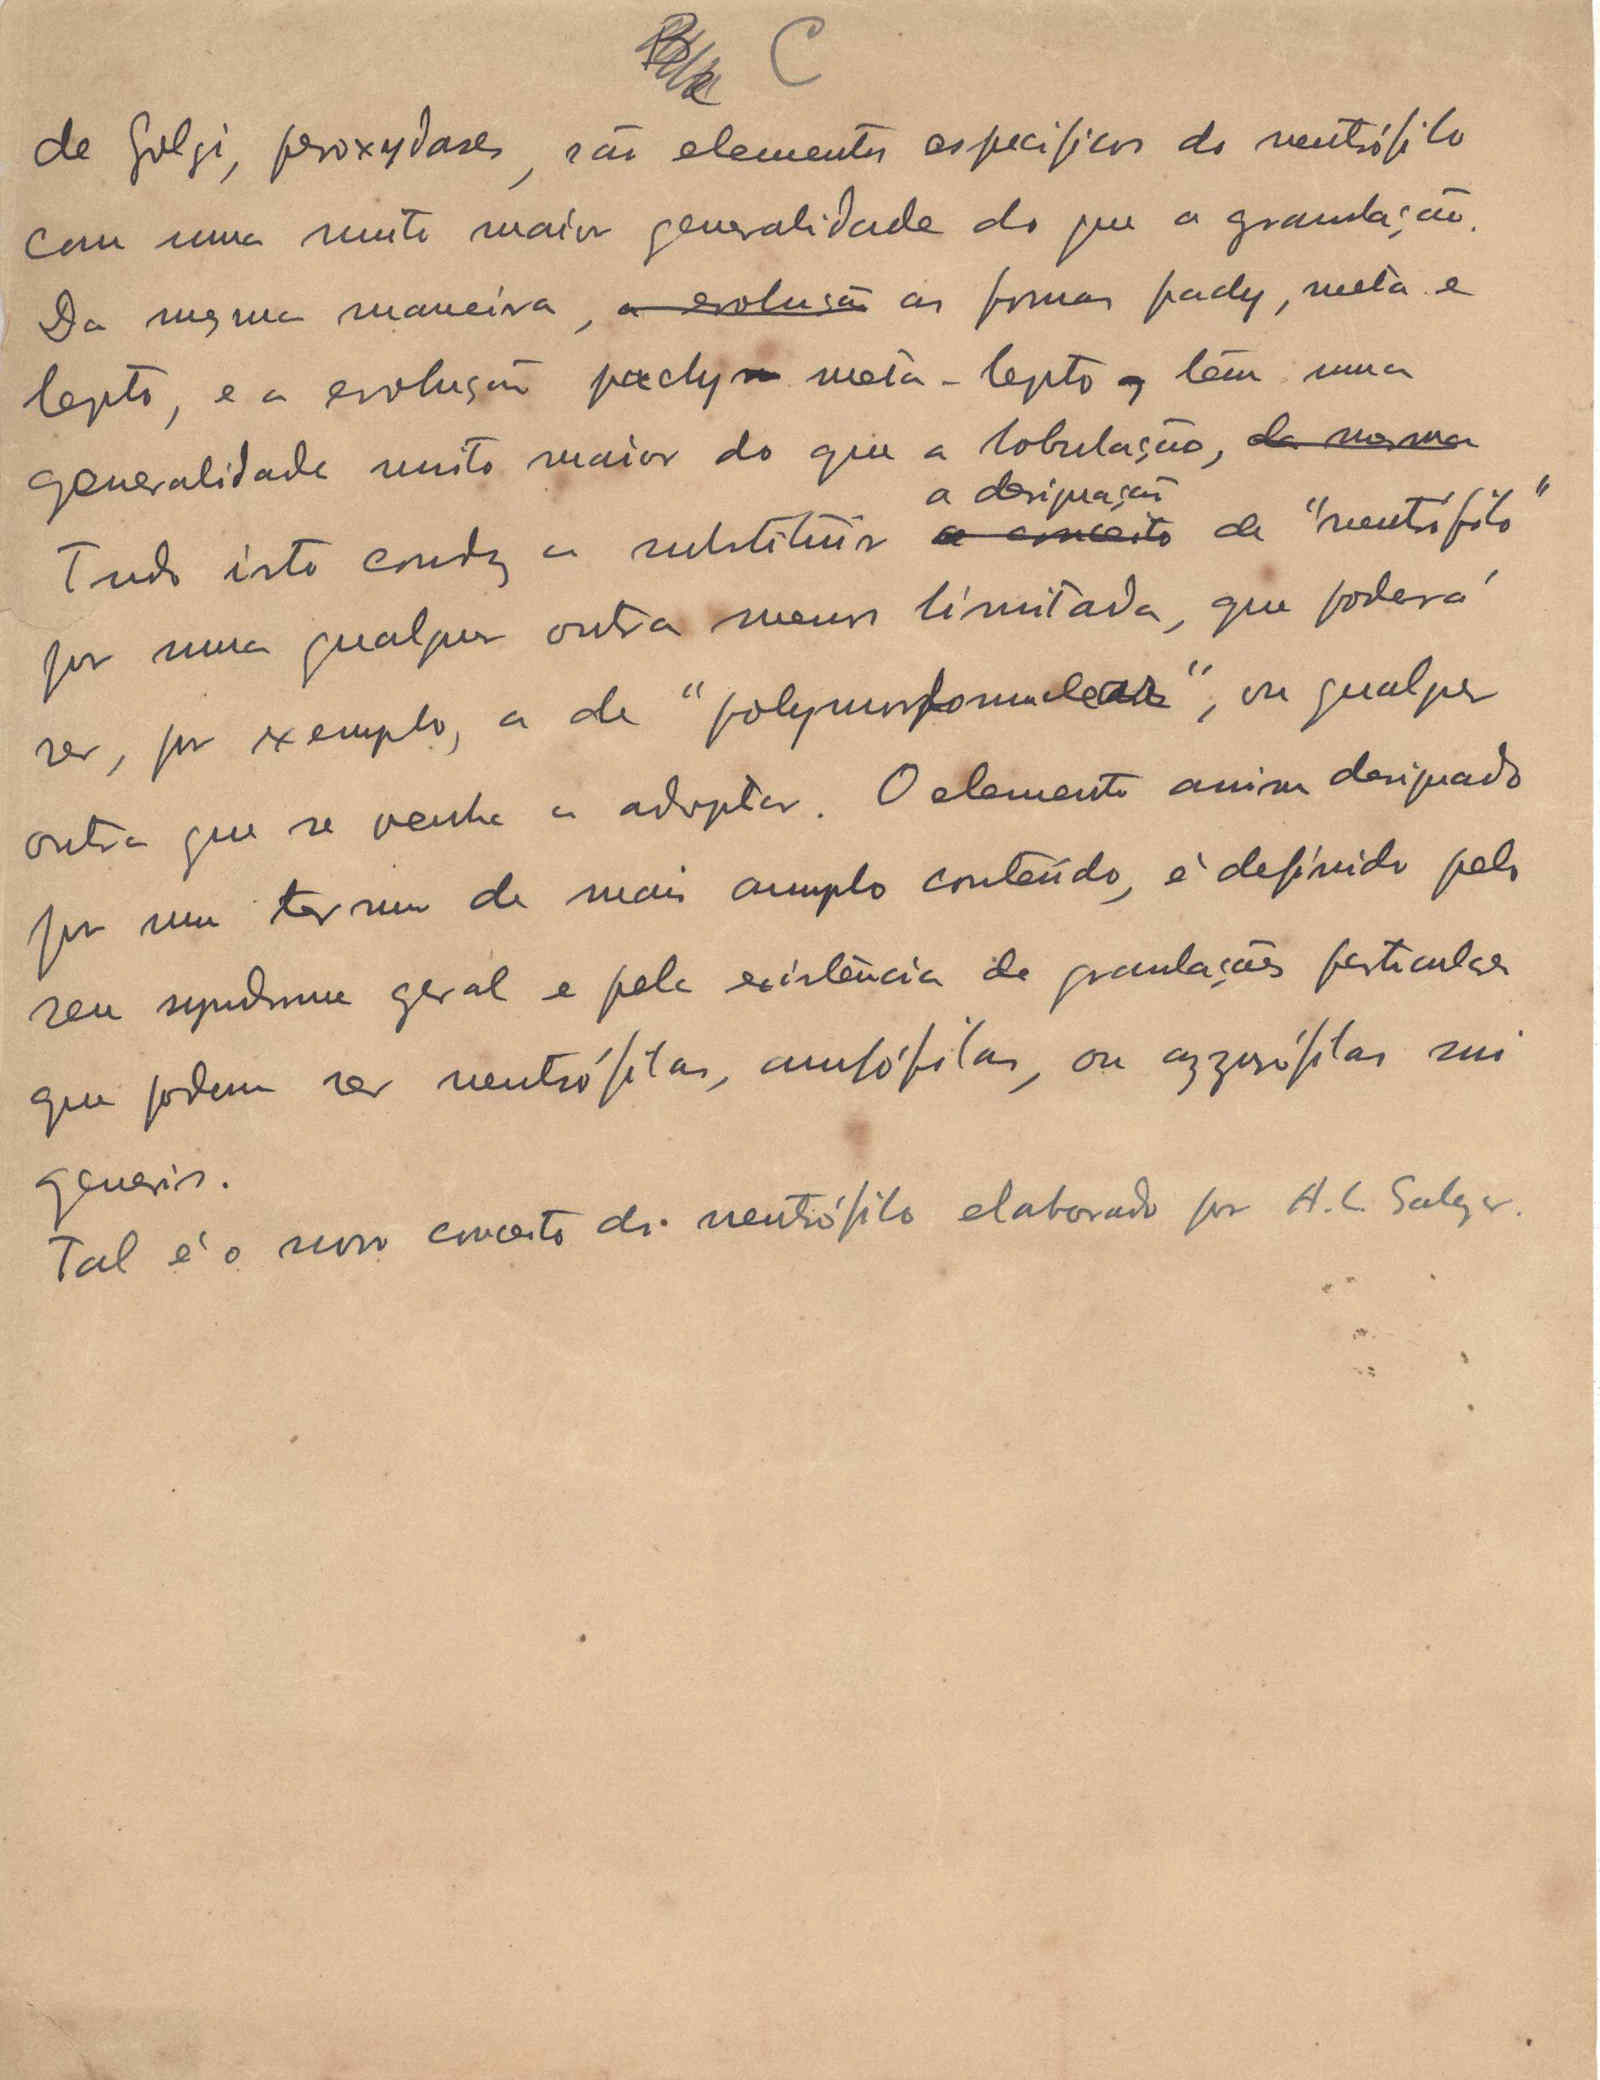 C
de Golgi, peroxydases, são elementos especificos do neutrófilo
com uma muito maior generalidade do que a granulação.
Da mesma maneira, a evolução as formas pachy, meta e
lepto, e a evolução pachy meta-lepto, têm uma
generalidade muito maior do que a lobulação, da mesma
a designação
Tudo isto conduz a substituir o conceito de "neutrófilo"
por uma qualquer outra menos limitada, que poderá
ser, por exemplo, a de "polymorfonuclear", ou qualquer
outra que se venha a adoptar. O elemento assim designado
por um termo de mais amplo conteúdo, é definido pelo
seu syndrome geral e pela existência de granulações particulares
que podem ser neutrófilas, amfófilas, ou azzurófilas sui
generis.
Tal é o novo conceito de neutrófilo elaborado por A. L. Salazar.